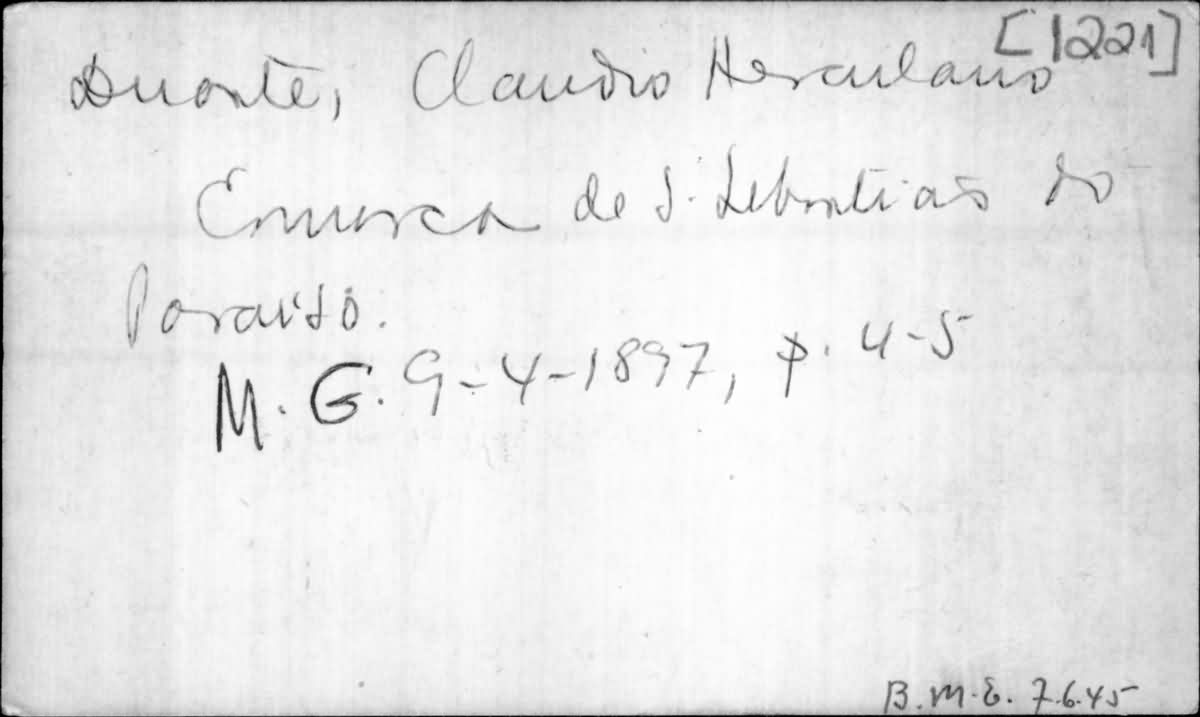 [1221]
Duarte, Claudio Herculano
Comarca de S. Sebastião do
Paraiso.
M. G. 9-4-1897, p. 4-5
B. M. E. 7.6.45